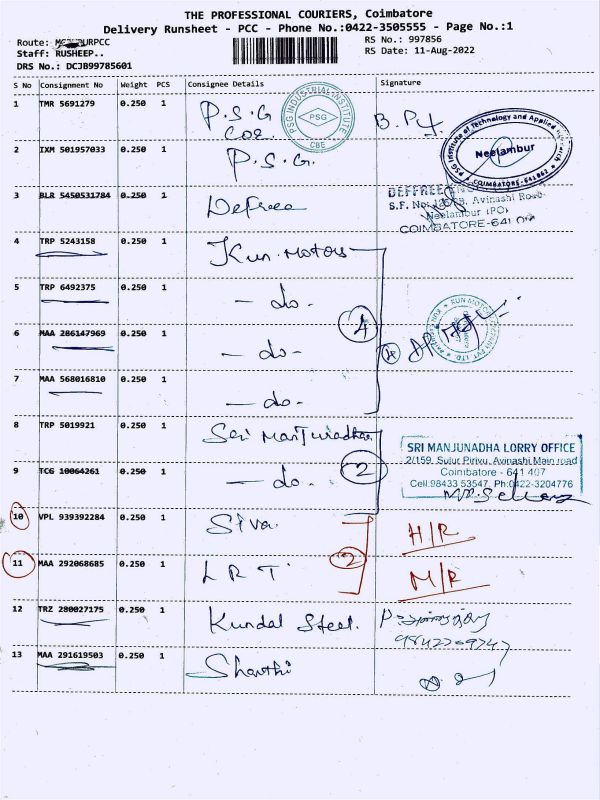 THE PROFESSIONAL COURIERS, Coimbatore
Delivery Runsheet - PCC - Phone No.:0422-3505555 - Page No.:1
Route: PURPCC RS No.: 997856
Staff: RUSHEEP.. RS Date: 11-Aug-2022
DRS No.: DCJB99785601
S No Consignment No Weight PCS Consignee Details Signature
1 TMR 5691279 0.250 1 P.S.G
COE
PSG INDUSTRIAL INSTITUTE
PSG
CBE
PSG Institute of Technology and Applied Research
Neelambur
COIMBATORE-641 062
2 IXM 501957033 0.250 1 P.S.G.
3 BLR 5450531784 0.250 1 Defree
DEFFREE
S.F. No. Avinashi Road
Neelambur (PO)
COIMBATORE-641 062
4 TRP 5243158 0.250 1 Kun. Motors
5 TRP 6492375 0.250 1 - do -
4
6 MAA 286147969 0.250 1 - do -
KUN MOTOR COMPANY PVT. LTD.
7 MAA 568016810 0.250 1 - do -
8 TRP 5019921 0.250 1 Sri Manjunadha
SRI MANJUNADHA LORRY OFFICE
2/159, Sulur Pirivu, Avinashi Main road
Coimbatore - 641 407
Cell:98433 53547, Ph:0422-3204776
9 TCG 10064261 0.250 1 - do - 2
10 VPL 939392284 0.250 1 Siva H/R
2
11 MAA 292068685 0.250 1 L R T M/R
12 TRZ 280027175 0.250 1 Kundal Steel.
13 MAA 291619503 0.250 1 Shanthi